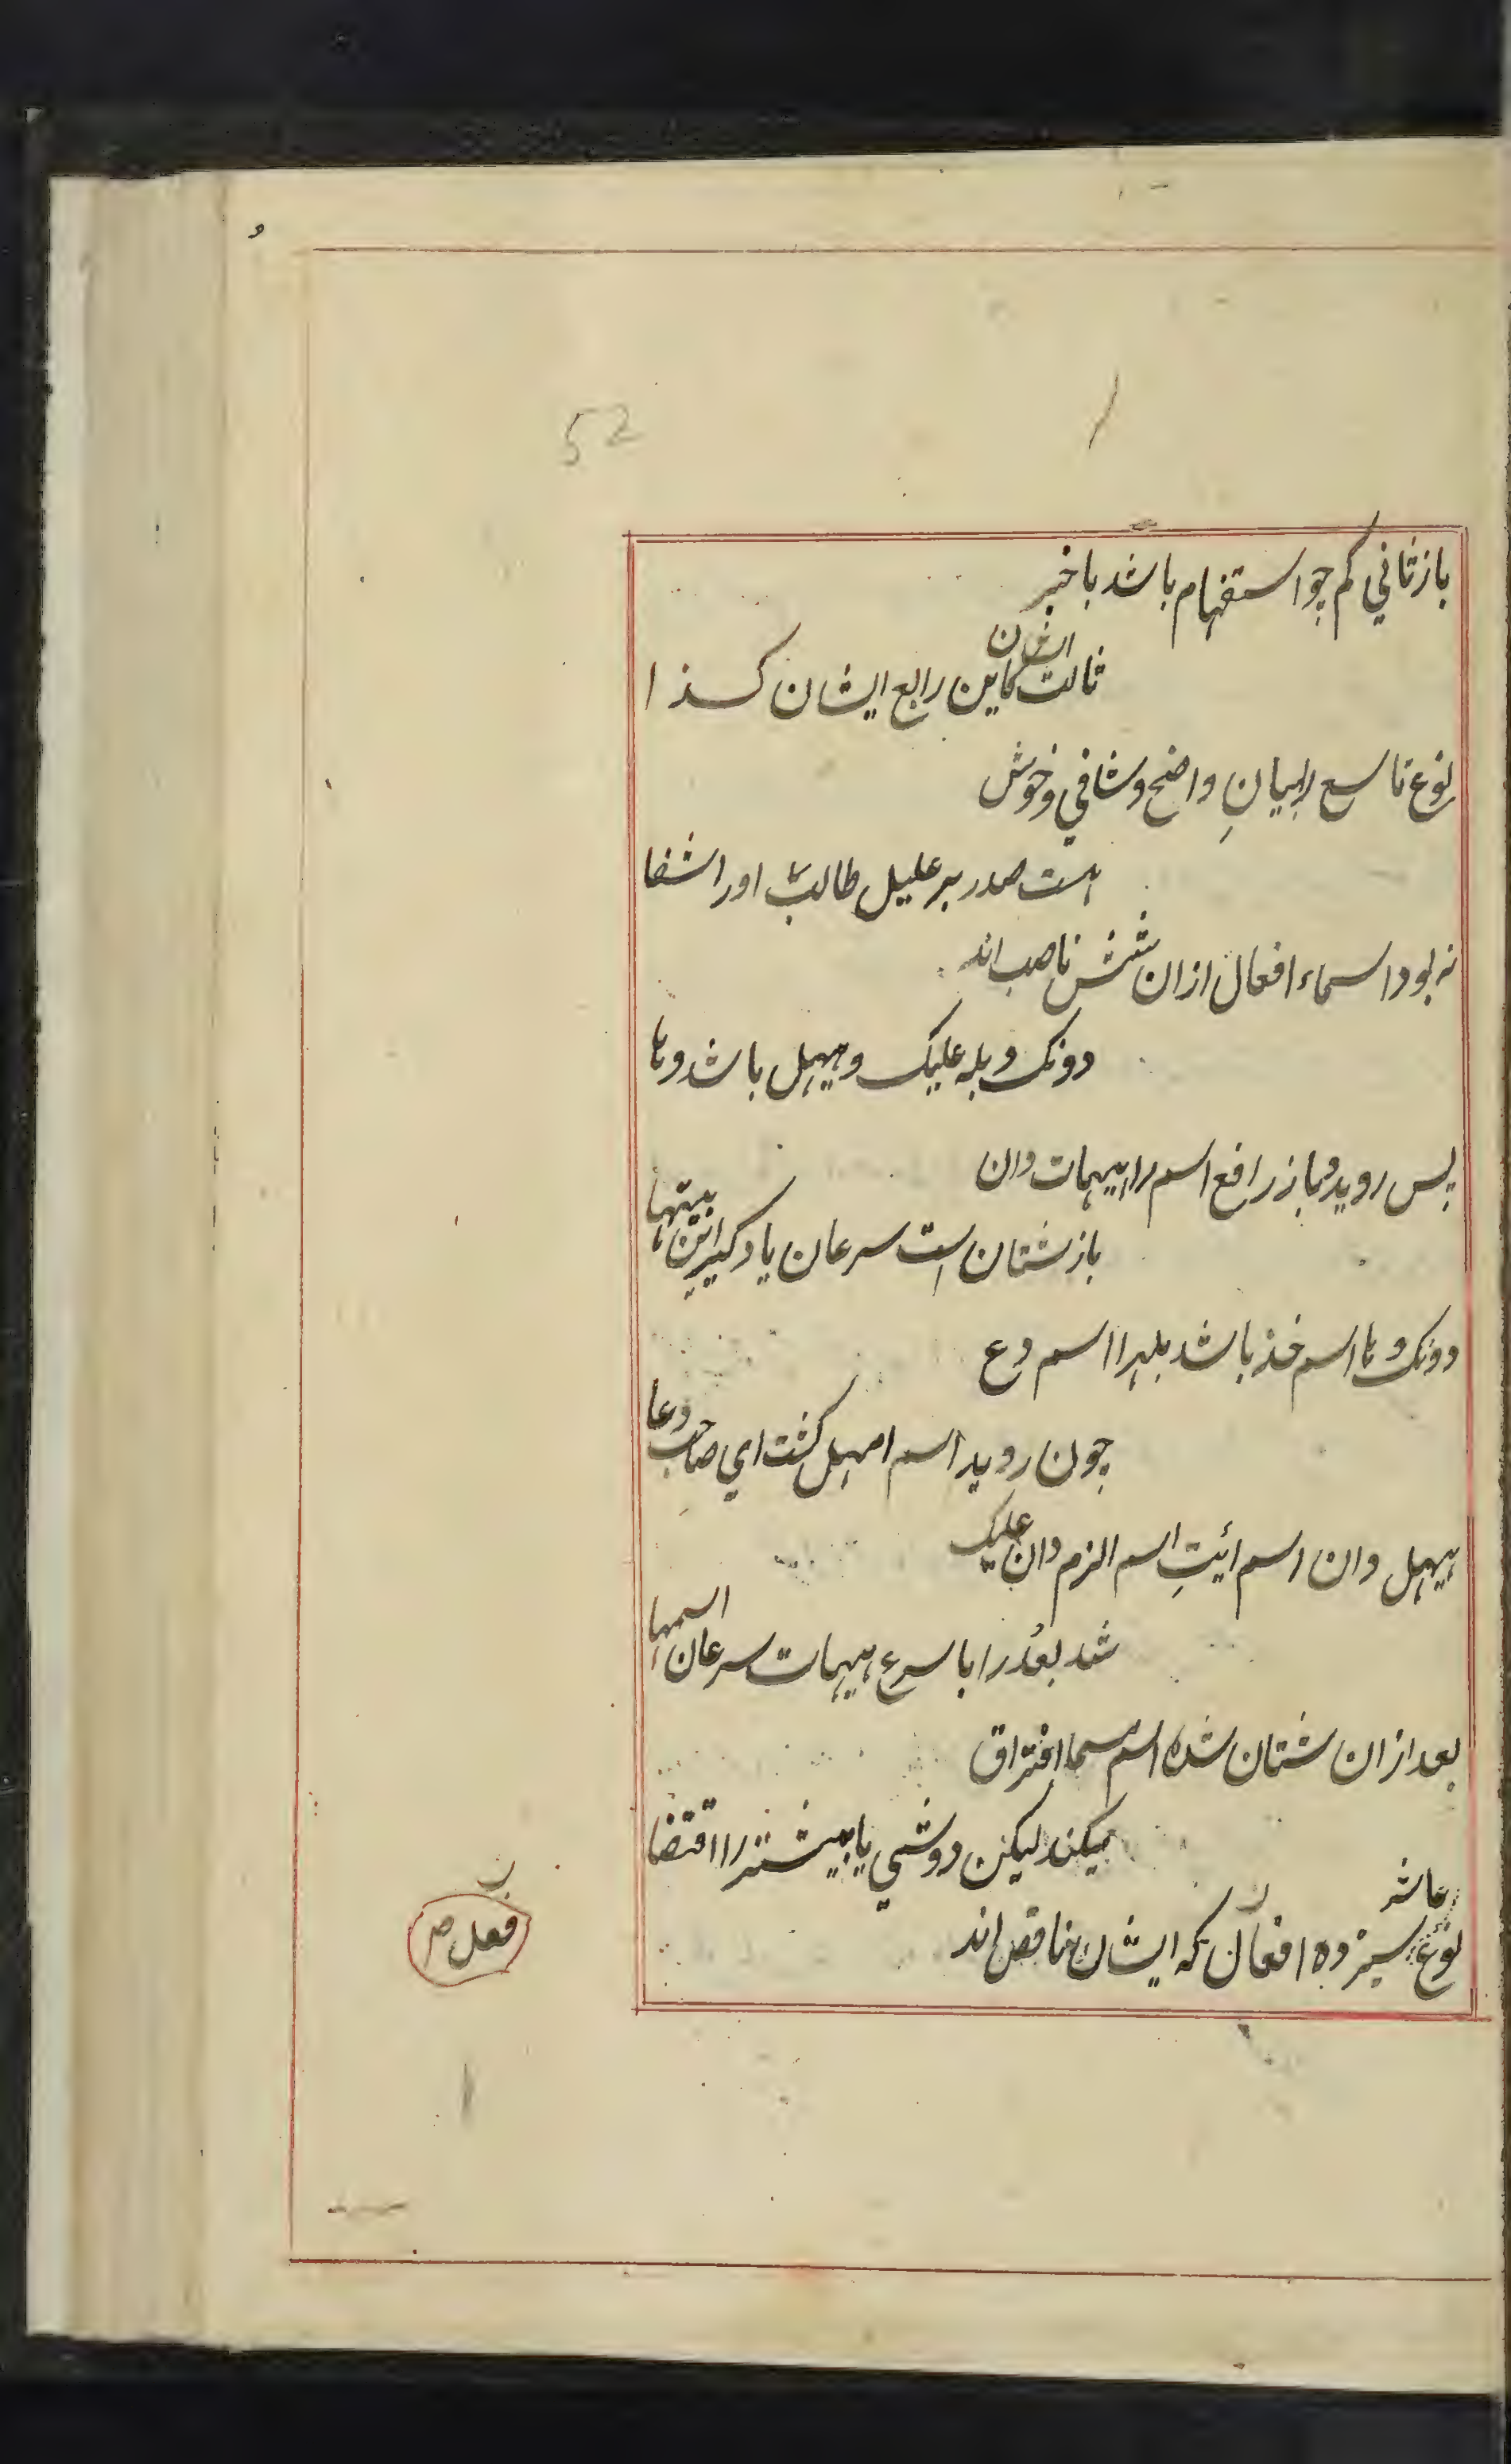 52
باز ثاني كم چو استفهام باشد با خبر
ثالث ايشان كاين رابع ايشان كذا
نوع تاسع را بيانِ واضح و شافي و خوش
هست صدر بر عليل طالب او را شفا
نه بود اسماء افعال ازان شش ناصب اند
دونك و بله عليك و حيهل باشد و ها
پس رويد و باز رافع اسم را هيهات دان
باز شتان است سرعان ياد گير اين بيتها
دونك و ها اسم خذ باشد بله را اسم دع
چون رويد اسم امهل گشت اي صاحب دعا
حيهل دان اسم ائيتِ اسم الزم دان عليك
شد بعُد را با سرع هيهات سرعان اسمها
بعد ازان شتان شده اسم مسما افتراق
ميكند ليكن دو شي يا بيشتر را اقتضا
نوع عاشر سيزده افعال كه ايشان ناقص اند
فعل